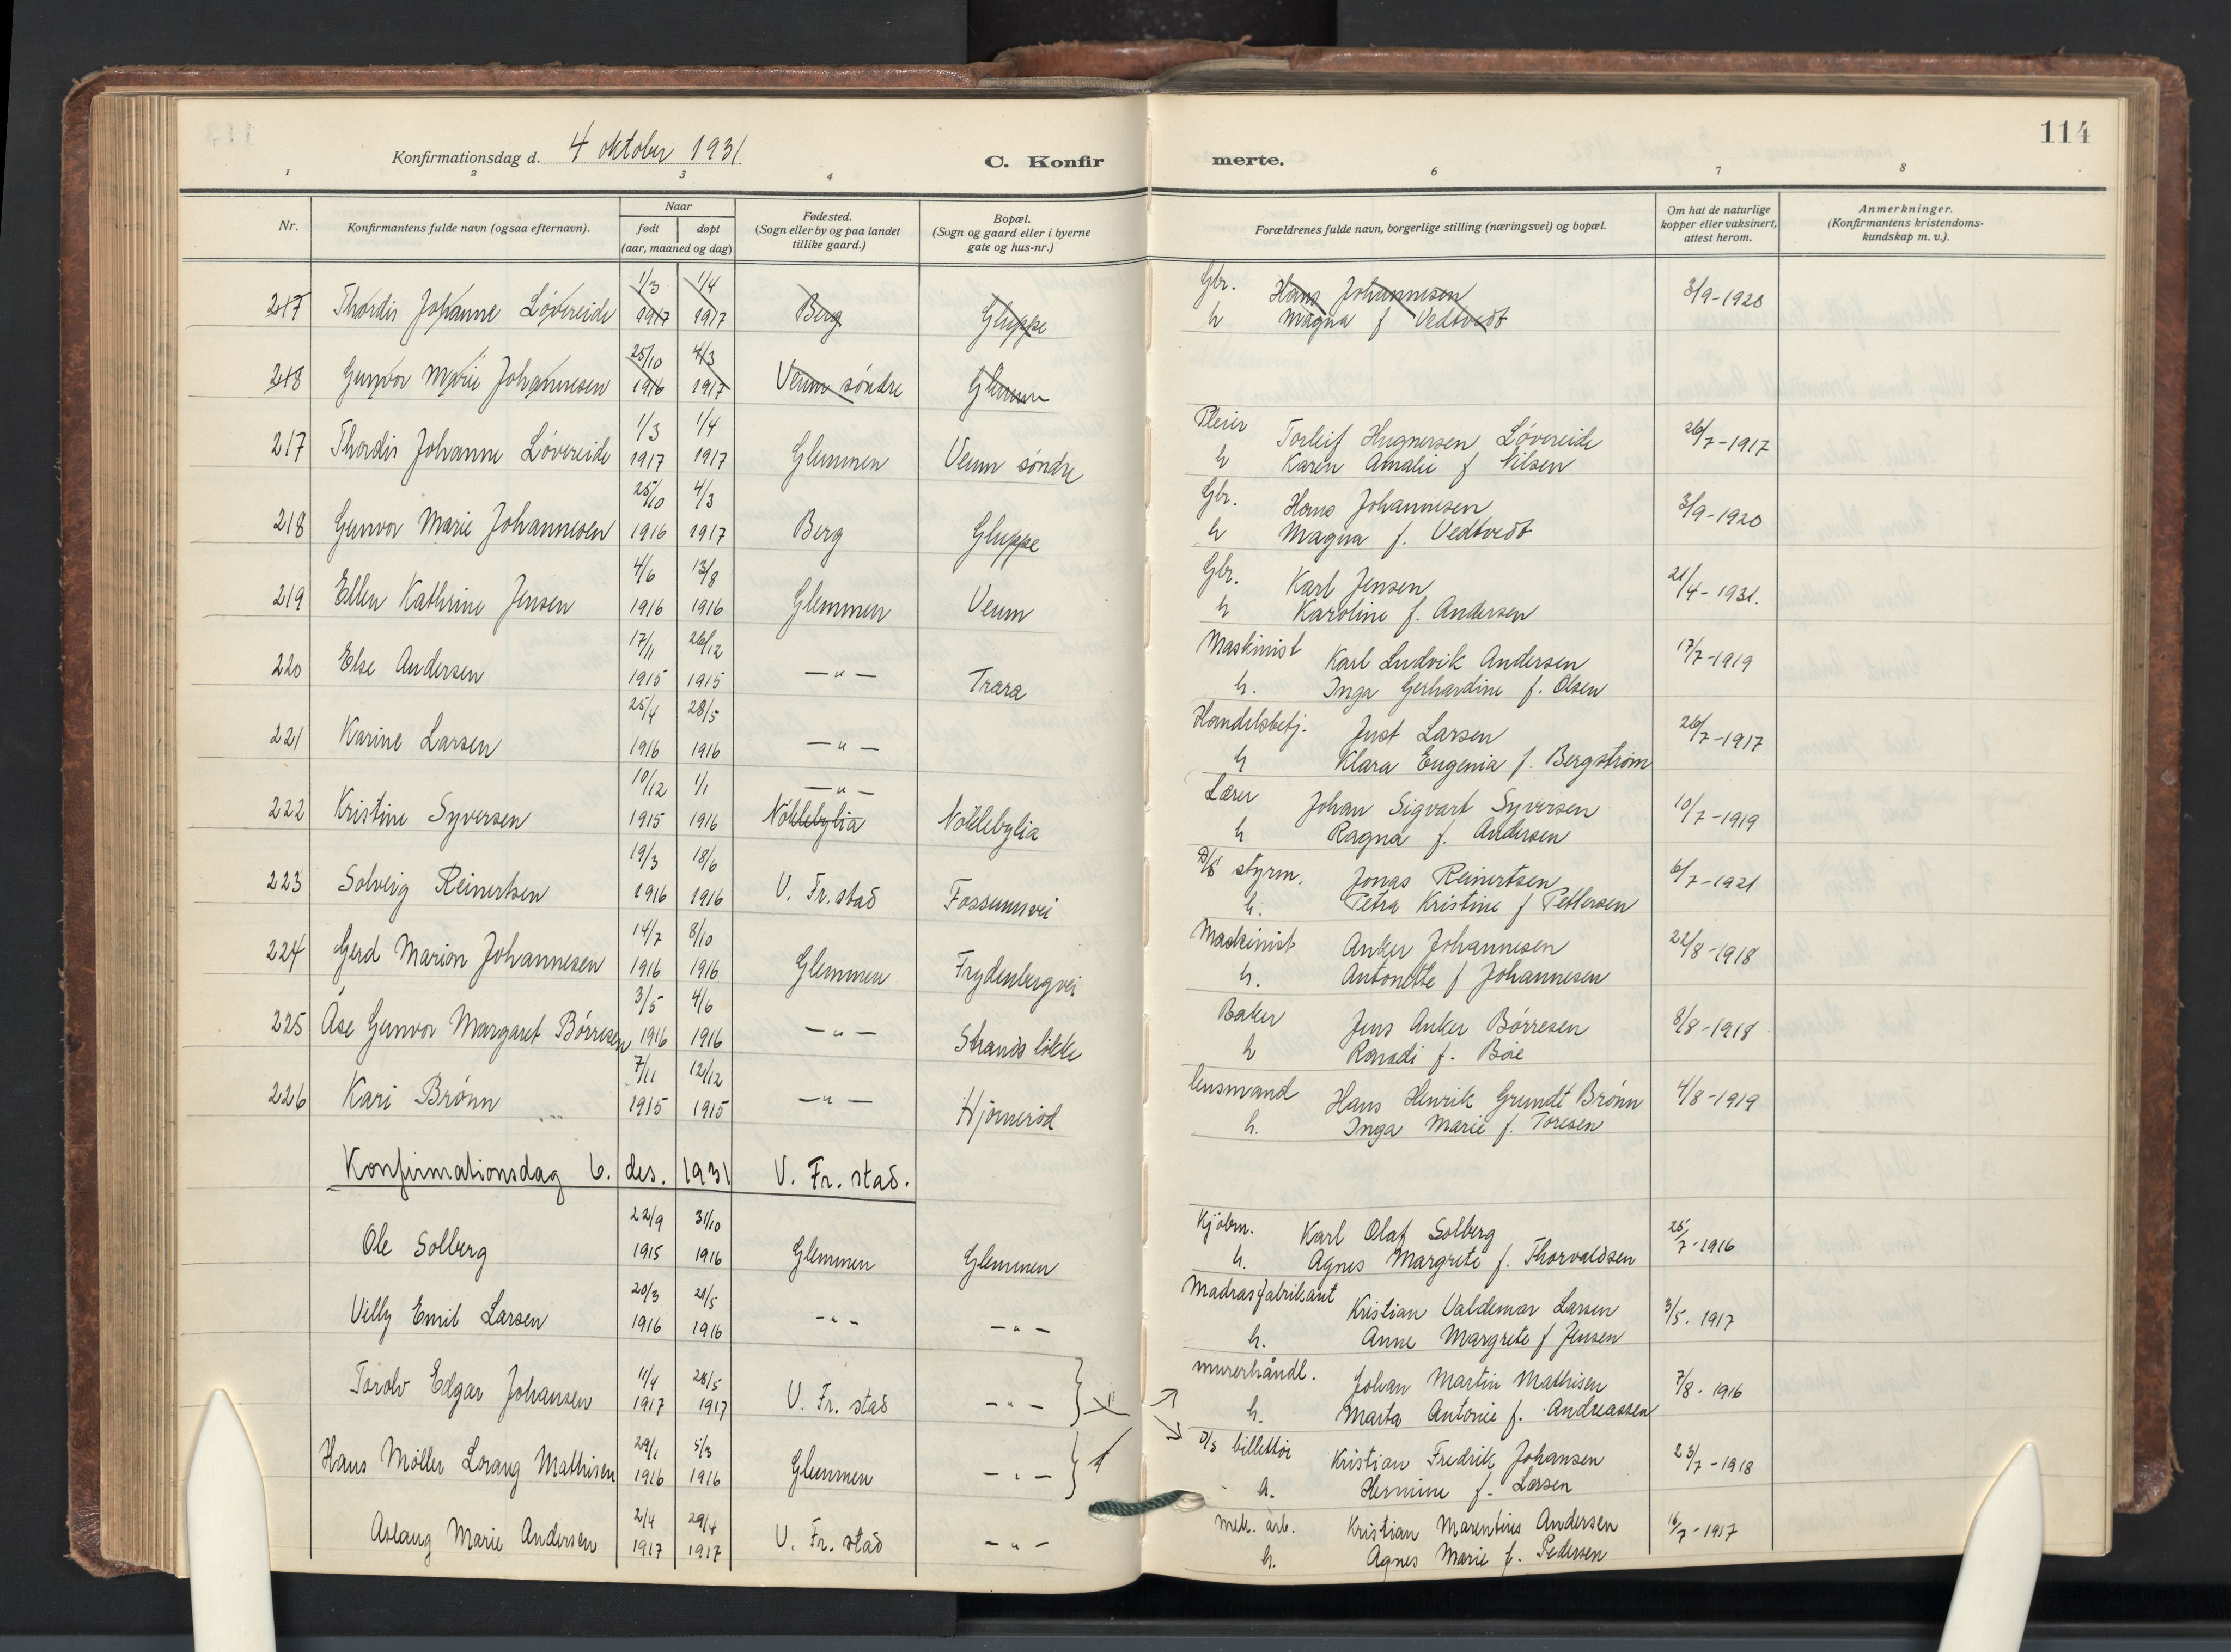 114
Konfirmationsdag d. 4 oktober 1931
C. Konfirmerte.
1 2 3 4 6 7 8
Nr.
Konfirmantens fulde navn (ogsaa efternavn).
Naar
født døpt
(aar, maaned og dag)
Fødested.
(Sogn eller by og paa landet
tillike gaard.)
Bopæl.
(Sogn og gaard eller i byerne
gate og hus-nr.)
Forældrenes fulde navn, borgerlige stilling (næringsvei) og bopæl.
Om hat de naturlige
kopper eller vaksinert,
attest herom.
Anmerkninger.
(Konfirmantens kristendoms-
kundskap m. v.).
217 Thordis Johanne Løvereide 1/3 1917 1/4 1917 Berg Gluppe Gbr. Hans Johannesen 3/9-1920
h Magna f Vedtvedt
218 Gunvor Marie Johannesen 25/10 1916 4/3 1917 Veum søndre Glemmen
217 Thordis Johanne Løvereide 1/3 1917 1/4 1917 Glemmen Veum søndre Pleier Torleif Løvereide 26/7-1917
h Karen Amalie f Nilsen
218 Gunvor Marie Johannesen 25/10 1916 4/3 1917 Berg Gluppe Gbr. Hans Johannesen 3/9-1920
h Magna f. Vedtvedt
219 Ellen Kathrine Jensen 4/6 1916 13/8 1916 Glemmen Veum Gbr. Karl Jensen 21/4-1931.
h Karoline f. Andersen
220 Else Andersen 17/11 1915 26/12 1915 —"— Trara Maskinist Karl Ludvik Andersen 17/7-1919
h. Inga Gerhardine f. Olsen
221 Karine Larsen 25/4 1916 28/5 1916 —"— Handelsbetj. Just Larsen 26/7-1917
h Klara Eugenia f. Bergstrøm
222 Kristine Syversen 10/12 1915 1/1 1916 —"— Nøklebylia Nøklebylia Lærer Johan Sigvart Syversen 10/7-1919
h Ragna f. Andersen
223 Solveig Reinertsen 19/3 1916 18/6 1916 V. Fr.stad Fossumsvei D/S styrm. Jonas Reinertsen 6/7-1921
h. Petra Kristine f Pettersen
224 Gerd Marion Johannesen 14/7 1916 8/10 1916 Glemmen Frydenbergvei Maskinist Anker Johannesen 22/8-1918
h. Antonette f Johannesen
225 Åse Gunvor Margaret Børresen 3/5 1916 4/6 1916 —"— Strands løkke Baker Jens Anker Børresen 8/8-1918
h f. Boie
226 Kari Brønn 7/11 1915 12/12 1915 —"— Hjørnerød lensmand Hans Henrik Grundt Brønn 4/8-1919
h. Inga Marie f. Toresen
Konfirmationsdag 6. des. 1931 V. Fr. stad.
Ole Solberg 22/9 1915 31/10 1916 Glemmen Glemmen Kjøbm. Karl Olaf Solberg 25/7-1916
h. Agnes Margrete f. Thorvaldsen
Villy Emil Larsen 20/3 1916 21/5 1916 -"- -"- Madrasfabrikant Kristian Valdemar Larsen 3/5. 1917
h. Anne Margrete f Jensen
Torolv Edgar Johansen 11/4 1917 28/5 1917 V. Fr. stad -"- murerhåndl. Johan Martin Mathisen 7/8. 1916
h. Marta Antonie f. Andreassen
Hans Møller Lorang Mathisen 29/1 1916 5/3 1916 Glemmen -"- D/S billettør Kristian Fredrik Johansen 23/7-1918
h. Hermine f. Larsen
Aslaug Marie Andersen 2/4 1917 29/4 1917 V. Fr. stad -"- mek. arb. Kristian Marentius Andersen 16/7-1917
h. Agnes Marie f. Pedersen